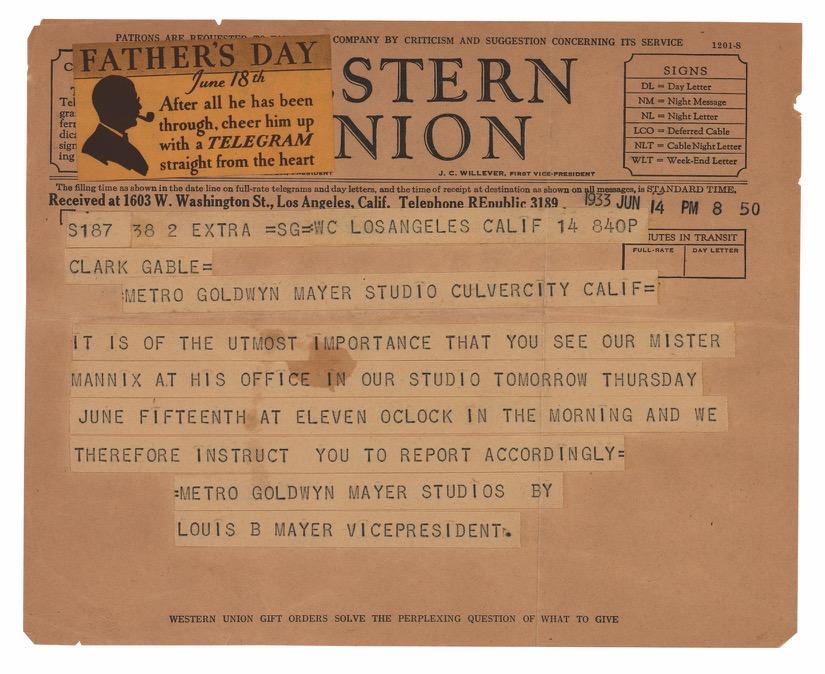 PATRONS ARE REQUESTED TO COMPANY BY CRITICISM AND SUGGESTION CONCERNING ITS SERVICE
1201-S
FATHER'S DAY
June 18th
After all he has been
through, cheer him up
with a TELEGRAM
straight from the heart
STERN
NION
J. C. WILLEVER, FIRST VICE-PRESIDENT
SIGNS
DL = Day Letter
NM = Night Message
NL = Night Letter
LCO = Deferred Cable
NLT = Cable Night Letter
WLT = Week-End Letter
The filing time as shown in the date line on full-rate telegrams and day letters, and the time of receipt at destination as shown on all messages, is STANDARD TIME.
Received at 1603 W. Washington St., Los Angeles, Calif. Telephone REpublic 3189
1933 JUN 14 PM 8 50
S187 38 2 EXTRA =SG=WC LOSANGELES CALIF 14 840P
UTES IN TRANSIT
FULL-RATE DAY LETTER
CLARK GABLE=
METRO GOLDWYN MAYER STUDIO CULVERCITY CALIF=
IT IS OF THE UTMOST IMPORTANCE THAT YOU SEE OUR MISTER
MANNIX AT HIS OFFICE IN OUR STUDIO TOMORROW THURSDAY
JUNE FIFTEENTH AT ELEVEN OCLOCK IN THE MORNING AND WE
THEREFORE INSTRUCT YOU TO REPORT ACCORDINGLY=
=METRO GOLDWYN MAYER STUDIOS BY
LOUIS B MAYER VICEPRESIDENT.
WESTERN UNION GIFT ORDERS SOLVE THE PERPLEXING QUESTION OF WHAT TO GIVE